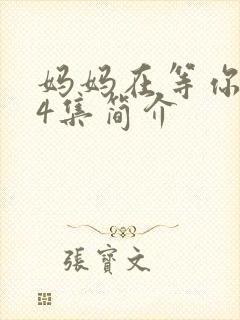 妈妈在等你
4集简介
張寶文